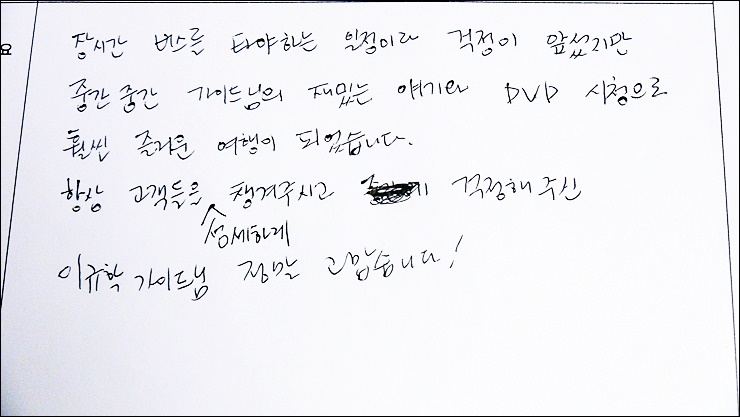 장시간 버스를 타야하는 일정이라 걱정이 앞섰지만
중간중간 가이드님의 재밌는 얘기와 DVD 시청으로
훨씬 즐거운 여행이 되었습니다.
항상 고객들을 챙겨주시고 걱정해주신
섬세하게
이규학 가이드님 정말 고맙습니다!